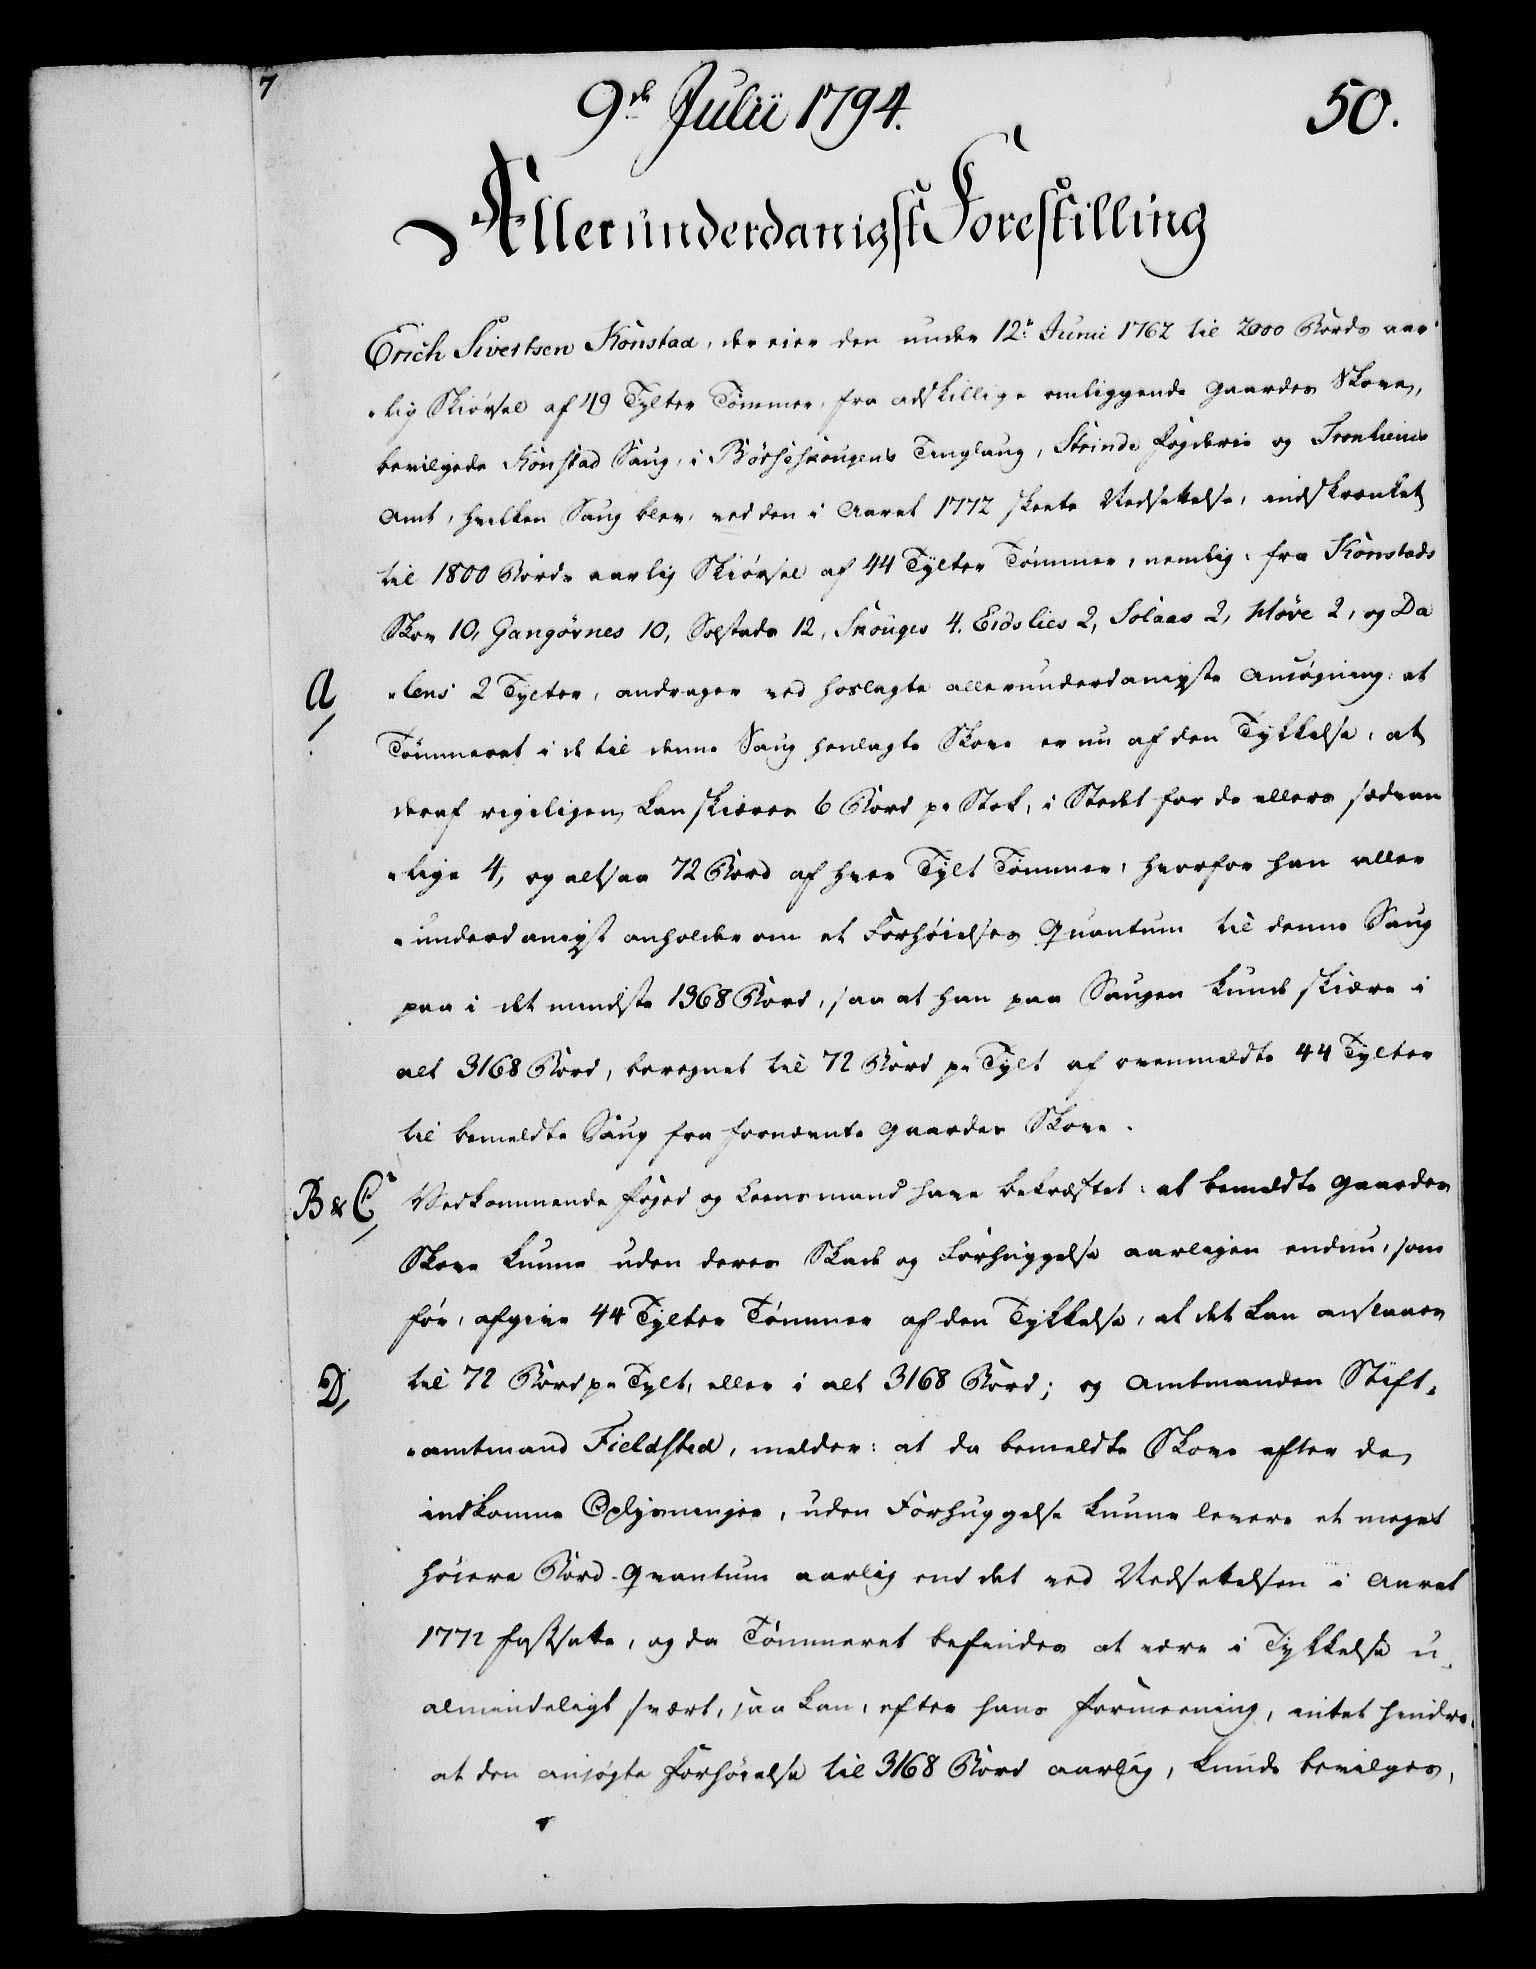 7
9de Julii 1794.
50.
Allerunderdanigst Forestilling
Erich Sivertsen Kònstad, der eier den under 12te Junii 1762 til 2000 Bords aar-
-lig Skiørsel af 49 Tylter Tømmer, fra adskillige omliggende Gaardes Skove,
bevilgede Kònstad Saug, i Børseskougens Tinglaug, Strinde Fogderie og Tronhiems
Amt, hvilken Saug blev, ved den i Aaret 1772 skeete Nedsettelse, indskrænket
til 1800 Bords aarlig Skiørsel af 44 Tylter Tømmer, nemlig: fra Kònstads
Skov 10, Gangørnes 10, Solstads 12, Skouges 4. Eidslies 2, Solaas 2, Høve 2, og Da
A, -lens 2 Tylter, andrager ved hoslagte allerunderdanigste Ansøgning: at
Tømmeret i de til denne Saug henlagte Skove er nu af den Tykkelse, at
deraf rigeligen kan skiæres 6 Bord pr Stok, i Stedet for de ellers sædvan
-lige 4, og altsaa 72 Bord af hver Tylt Tømmer, hvorfor han aller
-underdanigst anholder om et Forhøielses Quantum til denne Saug
paa i det mindste 1368 Bord, saa at han paa Saugen kunde skiære i
alt 3168 Bord, beregnet til 72 Bord pr Tylt af ovenmeldte 44 Tylter
til bemeldte Saug fra fornævnte Gaardes Skove.
B & C, Vedkommende Foged og Leensmand have bekræftet: at bemeldte Gaardes
Skove kunne uden deres Skade og Forhuggelse aarligen endnu, som
før, afgive 44 Tylter Tømmer af den Tykkelse, at det kan ansaaes
D, til 72 Bord pr Tylt, eller i alt 3168 Bord; og Amtmanden Stift-
-amtmand Fieldsted, melder: at da bemeldte Skove efter de
indkomne Oplysninger, uden Forhuggelse kunne levere et meget
høiere Bord-Quantum aarlig end det ved Nedsettelsen i Aaret
1772 fastsatte, og da Tømmeret befindes at være i Tykkelse u-
almindeligt svært, saa kan, efter hans Formeening, intet hindre
at den ansøgte Forhøielse til 3168 Bord aarlig, kunde bevilges,